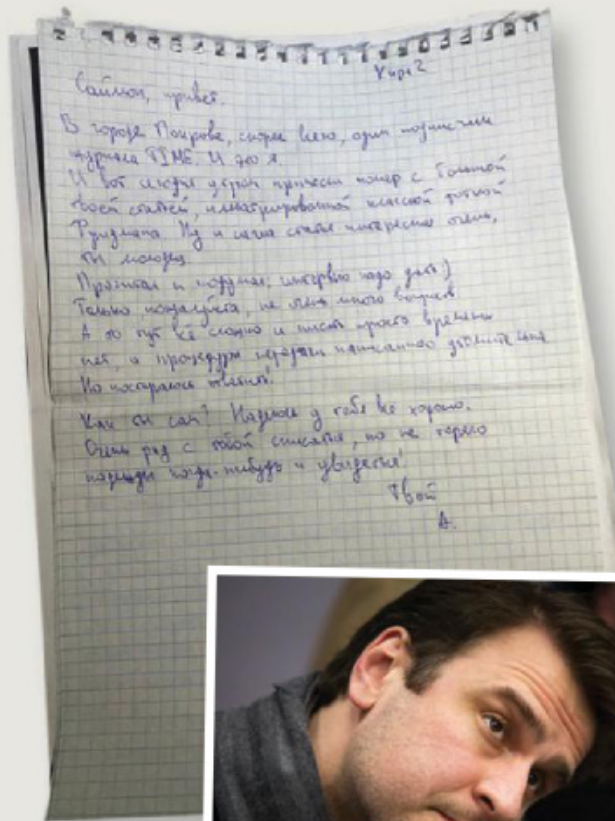 Саймон, привет.
В городе Покрове, скорее всего, один подписчик
журнала TIME. И это я.
И вот сегодня утром принесли номер с большой
твоей статьей, иллюстрированной классной фоткой
Фридмана. Ну и сама статья интересная очень,
ты молодец.
Прочитал и подумал: интервью надо дать:)
Только пожалуйста, не очень много вопросов.
А то тут всё сложно и писать просто времени
нет, а процедура передачи написанного
Но постараюсь ответить!
Как ты сам? Надеюсь у тебя всё хорошо.
Очень рад с тобой списаться, но не теряю
надежды когда-нибудь и увидеться!
Твой
А.